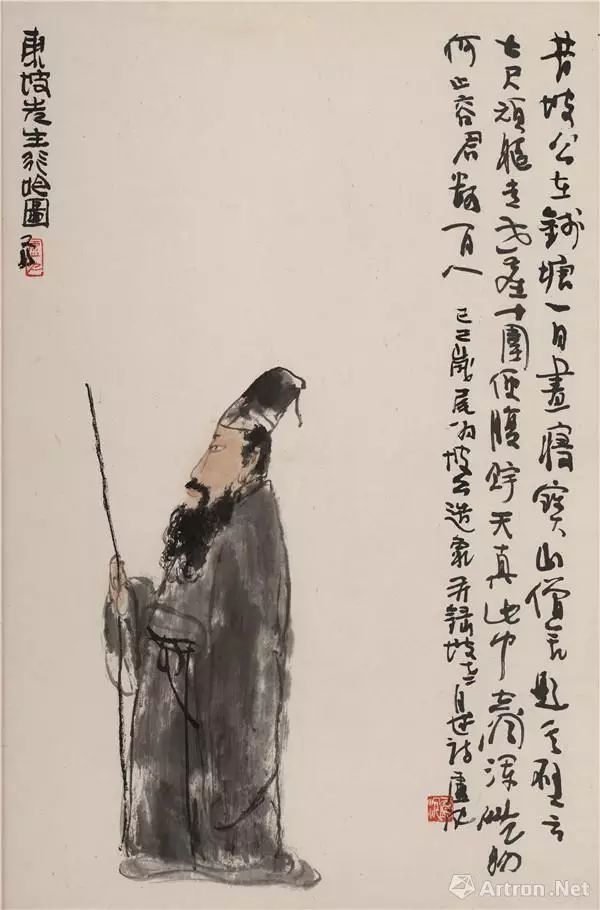 昔坡公在錢塘一日晝寢寶山僧舍題其壁云
七尺頑軀走世塵十圍便腹貯天真此中空洞渾無物
何止容君數百人 己巳歲尾為坡公造象并錄坡老自詩盧沉
東坡先生行吟圖
Artron.Net